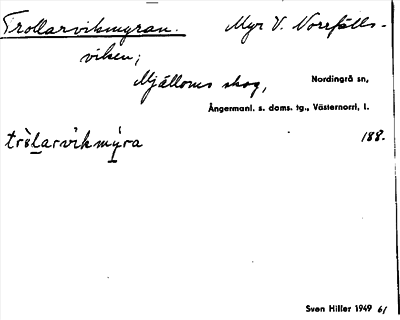 Trollarvikmyran. Myr V. Norrfälls-
viken;
Mjälloms skog, Nordingrå sn,
Ångermanl. s. doms. tg., Västernorrl. l.
tròlarvikmýra 188.
Sven Hiller 1949 61